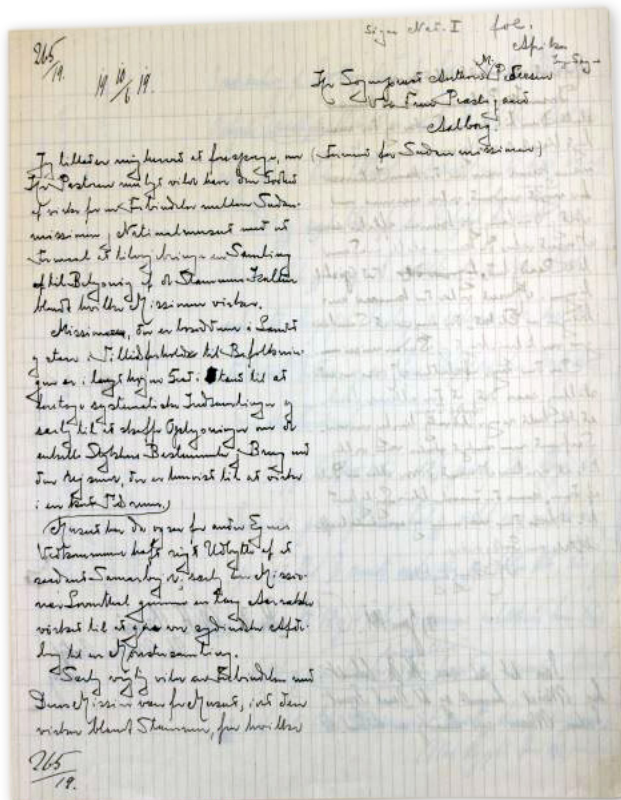 265/19.
fol.
Afrika
19 10/6 19.
Hr Sognepræst Anthon M. Pedersen
Vor Frue Præstegaard
Aalborg.
Jeg tillader mig herved at forespørge, om (Formand for Sudanmissionen)
Hr Pastoren muligt vilde have den Godhed
at virke for en Forbindelse mellem Sudan-
missionen og Nationalmuseet med det
Formaal at tilvejebringe en Samling
til Belysning af de Stammers Kultur
blandt hvilke Missionen virker.
Missionæren, der er bosiddende i Landet
og staar i Tillidsforholdet til Befolknin-
gen er i langt højere Grad i Stand til at
foretage systematiske Indsamlinger og
særlig til at skaffe Oplysninger om de
enkelte Stykkers Bestemmelse og Brug end
den rejsende, der er henvist til at virke
i en
Museet har da ogsaa for andre Egnes
Vedkommende haft Udbytte af et
saadant Samarbejde, særlig har Missio-
nær Løventhal gennem en lang Aarrække
virket til at gøre vor sydindiske Afde-
ling til en Mønstersamling.
Særlig vigtig vilde en Forbindelse med
Deres Mission være for Museet, idet den
virker blandt Stammer, fra hvilke
265/19.